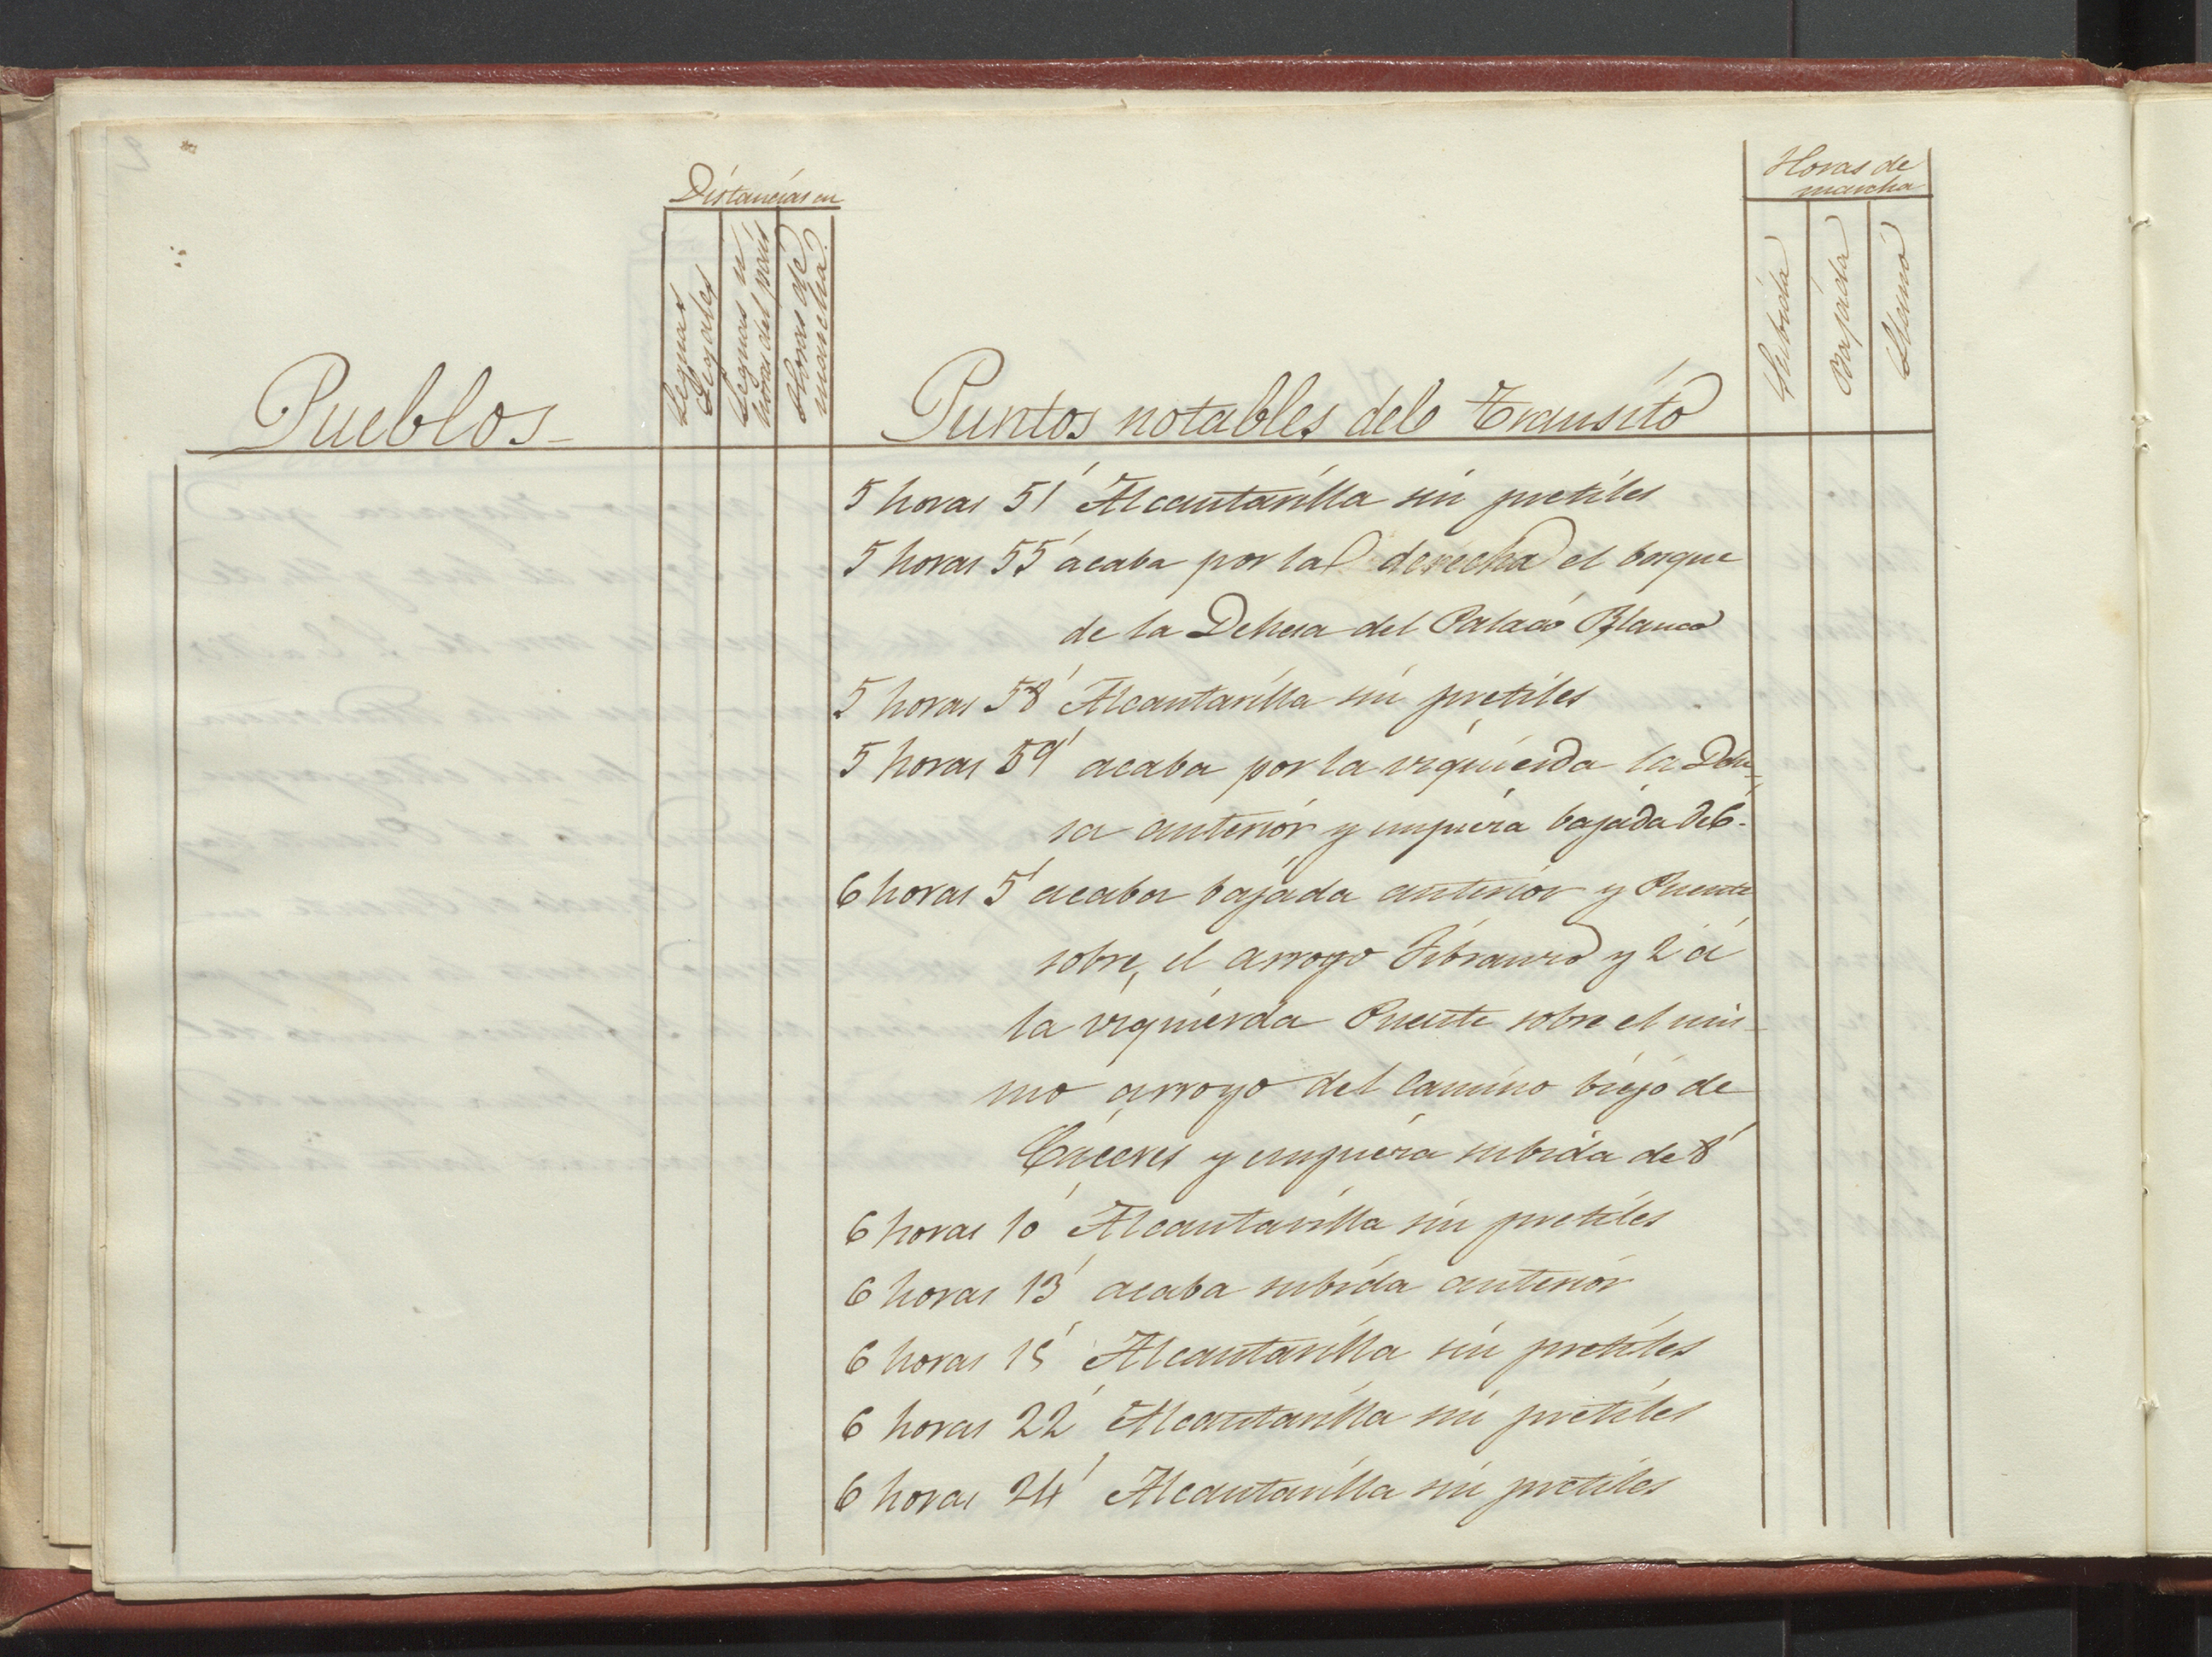 Distancias en
Horas de
marcha
Leguas
Legales
Leguas u
horas del país
Horas de
marcha
Subida
Bajada
Llano
Pueblos
Puntos notables del Transito
5 horas 51' Alcantarilla sin pretiles
5 horas 55' acaba por la derecha el bosque
de la Dehesa del Palacio Blanco
5 horas 58' Alcantarilla sin pretiles
5 horas 59' acaba por la izquierda la Dehe-
sa anterior y empieza bajada de 6'
6 horas 5' acaba bajada anterior y Puente
sobre el arroyo y 2' á
la izquierda Puente sobre el mis-
mo arroyo del Camino biejo de
Cáceres y empieza subida de 8'
6 horas 10' Alcantarilla sin pretiles
6 horas 13' acaba subida anterior
6 horas 15' Alcantarilla sin pretiles
6 horas 22' Alcantarilla sin pretiles
6 horas 24' Alcantarilla sin pretiles